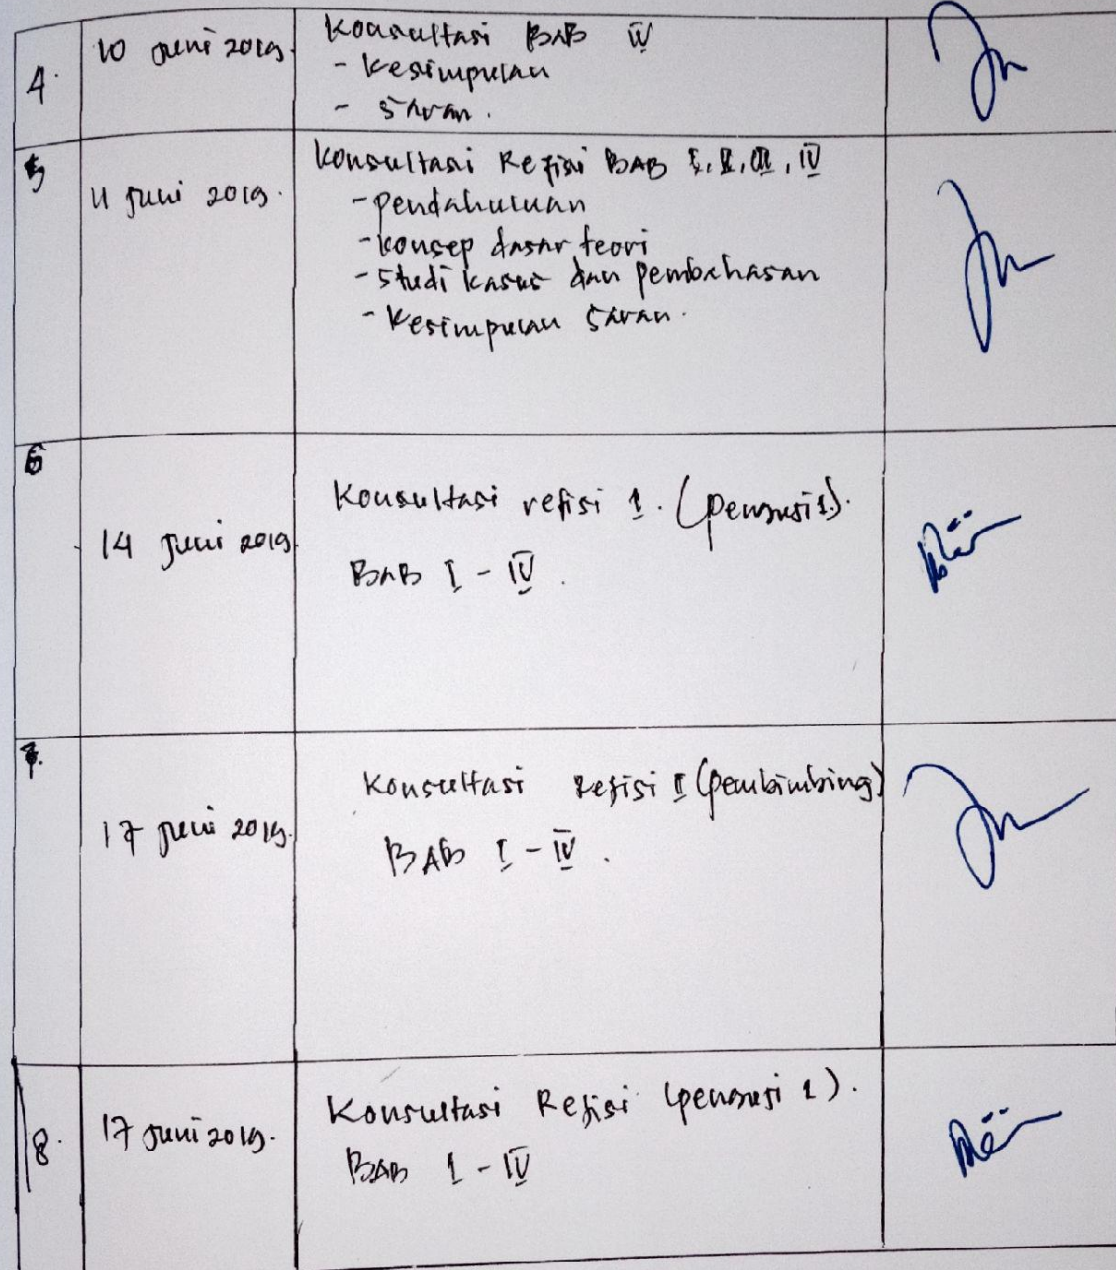 4.
10 Juni 2019.
Konsultasi BAB IV
- Kesimpulan
- Saran.
5
11 Juni 2019.
Konsultasi Refisi BAB I, II, III, IV
- pendahuluan
- konsep dasar teori
- Studi kasus dan pembahasan
- Kesimpulan Saran.
6
14 Juni 2019
Konsultasi refisi 1. (penguji 1).
BAB I - IV.
7.
17 Juni 2019.
Konsultasi Refisi I (pembimbing)
BAB I - IV.
8.
17 Juni 2019.
Konsultasi Refisi (penguji 1).
BAB I - IV